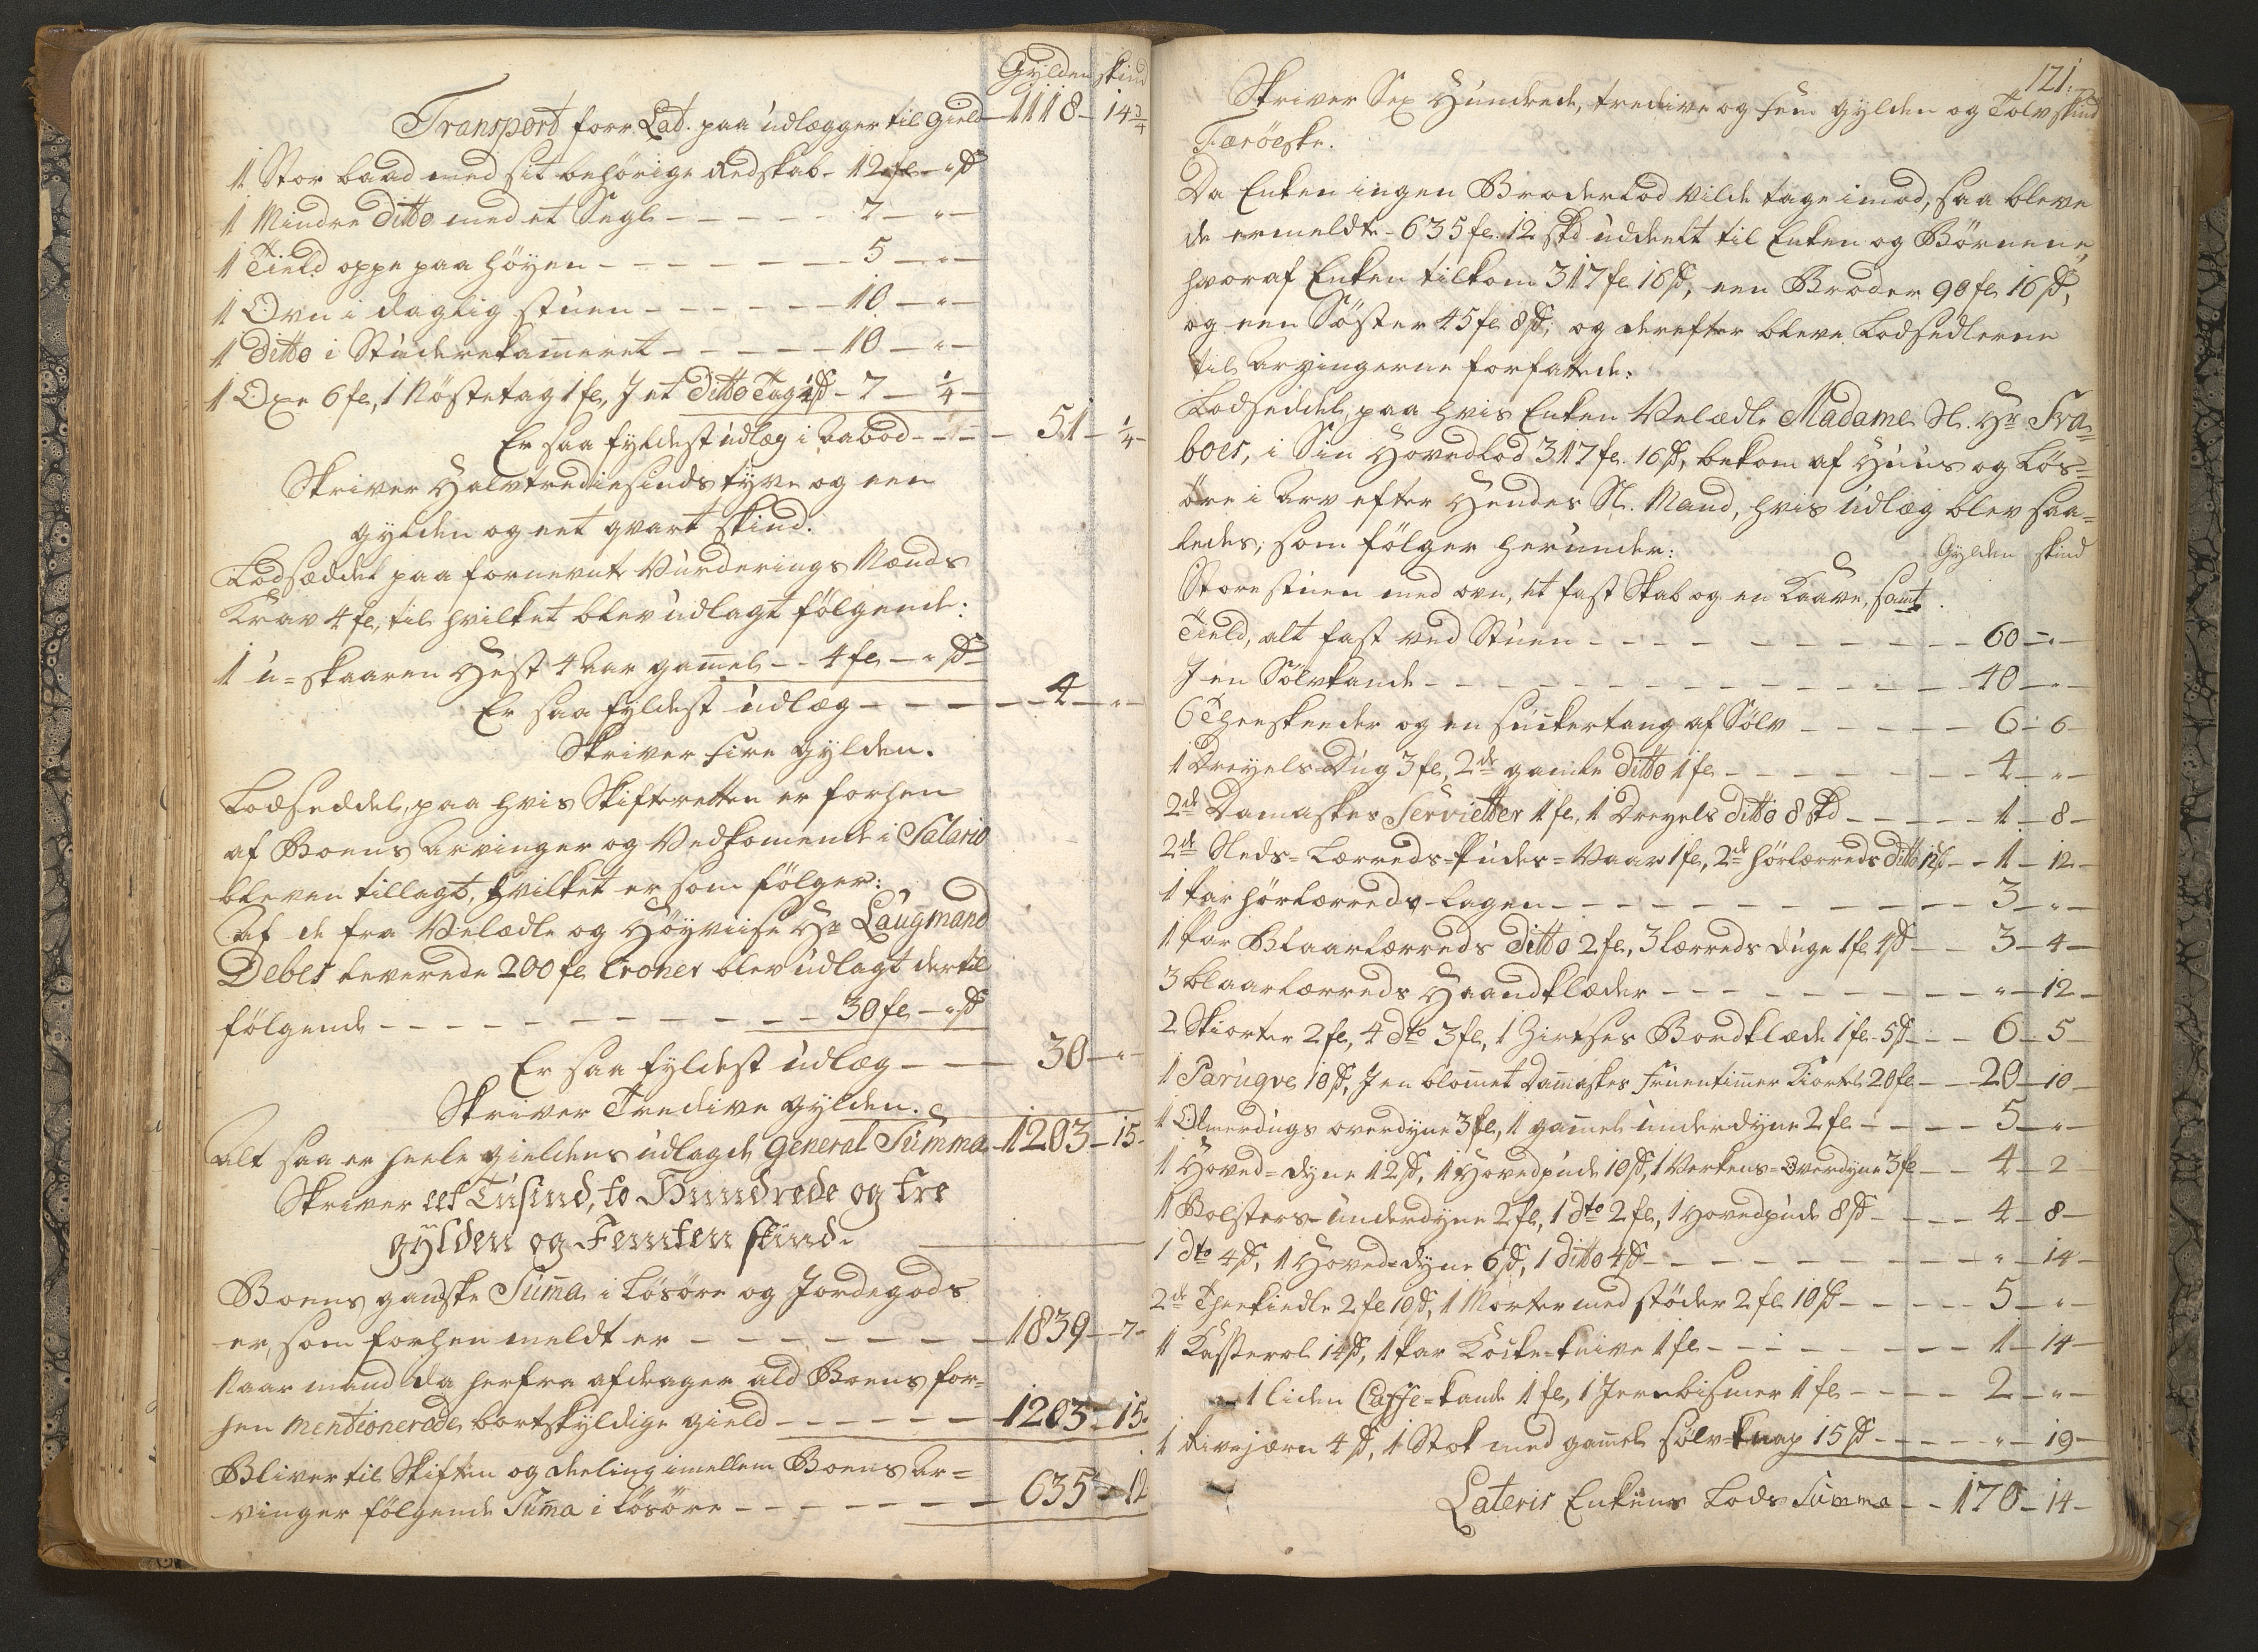 Gylden skind
Transport forr. Lat. paa udlægger til Gield 1118 - 14 3/4
1 Stor baad med sit behörige Redskab - 12 fl - " ß
1 Mindre Ditto med et Segl - - - - - 7 - " -
1 Tield oppe paa höyen - - - - - - - 5 - " -
1 Ovn i daglig stuen - - - - - 10 - " -
1 Ditto i Studerekam̄eret - - - - - 10 - " -
1 Oxe 6 fl, 1 Nöstetag 1 fl, J et Ditto Tag 1/4 ß - 7 - 1/4 -
Er saa fyldest udlæg i Aabod - - - 51 - 1/4 -
Skriver Halvtrediesindstyve og een
gylden og eet qvart skind.
Lodsæddel paa fornevnte Vurderings Mænds
Krav 4 fl, til hvilket blev udlagt fölgende:
1 u=skaaren Hest 4 Aar gam̄el - - 4 fl - " ß
Er saa fyldest udlæg - - - - 4 - " -
Skriver Fire Gylden.
Lodseddel, paa hvis Skifteretten er forhen
af Boens Arvinger og Vedkom̄ende i Salario
bleven tillagt, hvilket er som fölger:
Af de fra Velædle og Höyviise Hr Laugmand
Debes leverede 200 fl Croner blev udlagt dertil
fölgende - - - - - - - - - 30 fl - " ß
Er saa fyldest udlæg - - - 30 - " -
Skriver Tredive Gylden.
Alt saa er heele gieldens udlagde General Summa 1203 - 15 -
Skriver eet Tusind, to Hundrede og tre
gylden og Femten skind.
Boens gandske Sum̄a i Lösöre og Jordegods
er, som forhen meldt er - - - - - - - 1839 - 7 -
Naar mand da herfra afdrager ald Boens for=
hen mentionerede bortskyldige gield - - - - - 1203 - 15 -
Bliver til Skiften og deeling imellem Boens Ar=
vinger fölgende Sum̄a i Lösöre - - - - - - - 635 - 12
121.
Skriver Sex Hundrede, tredive og fem gylden og Tolv skind
Færöeske.
Da Enken ingen Broderlod vilde tage imod, saa bleve
de ermeldte - 635 fl. 12 skd uddeelt til Enken og Börnene,
hvoraf Enken tilkom 317 fl 16 ß, een Broder 90 fl 16 ß,
og een Söster 45 fl 8 ß; og derefter bleve Lodsedlerne
til Arvingerne forfattede:
Lodseddel, paa hvis Enken Velædle Madame Sl. Hr Sva=
boes, i Sin Hovedlod 317 fl. 16 ß, bekom af Huus og Lös=
öre i Arv efter Hendes Sl. Mand, hvis udlæg blev saa=
ledes, som fölger herunder: Gylden skind
Store stuen med ovn, et fast Skab og en Kaave, samt
Tield, alt fast ved Stuen - - - - - - - - - 60 - " -
J en Sölvkande - - - - - - - - - - - - 40 - " -
6 Theeskeeder og en Suckertang af Sölv - - - - - 6 - 6 -
1 Dreyels Dug 3 fl, 2de gamle Ditto 1 fl - - - - - - 4 - " -
2de Damaskes Servietter 1 fl, 1 Dreyels Ditto 8 skd - - - - - 1 - 8 -
2de Neds=Lærreds-Pudes=Vaar 1 fl, 2de hörlærreds Ditto 12 ß - - 1 - 12 -
1 par hörlærreds-Lagen - - - - - - - - - - 3 - " -
1 par Blaarlærreds Ditto 2 fl, 3 lærreds Duge 1 fl 4 ß - - 3 - 4 -
3 blaarlærreds Haandklæder - - - - - - - - - " - 12 -
2 Skiorter 2 fl, 4 dto 3 fl, 1 Zirtses Bordklæde 1 fl. 5 ß - - - 6 - 5 -
1 Parugve 10 ß, J en blom̄et Dam̄askes Fruentim̄er Kiortel 20 fl - - 20 - 10 -
1 Olmerdugs overdyne 3 fl, 1 gam̄el underdyne 2 fl - - - - 5 - " -
1 Hoved=dyne 12 ß, 1 Hovedpude 10 ß, 1 Verkens=Overdyne 3 fl - - 4 - 2 -
1 Bolsters-underdyne 2 fl, 1 dto 2 fl, 1 Hovedpude 8 ß - - - - 4 - 8 -
1 dto 4 ß, 1 Hovededyne 6 ß, 1 ditto 4 ß - - - - - - - - - " - 14 -
2de Theekiedle 2 fl 10 ß, 1 Morter med stöder 2 fl 10 ß - - - - - 5 - " -
1 Kasserol 14 ß, 1 par Kocke=knive 1 fl - - - - - - - - 1 - 14 -
1 liden Caffe=kande 1 fl, 1 Jernbismer 1 fl - - - - 2 - " -
1 Rivejærn 4 ß, 1 Stok med gam̄el sölv=knap 15 ß - - - - - " - 19 -
Lateris Enkens Lods Summa - - 170 - 14 -